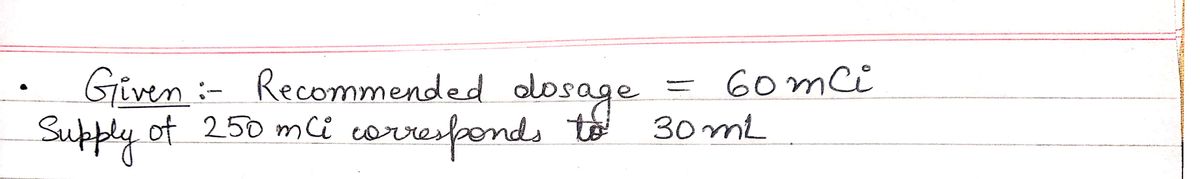 • Given :- Recommended dosage = 60 mCi
Supply of 250 mCi corresponds to 30 mL